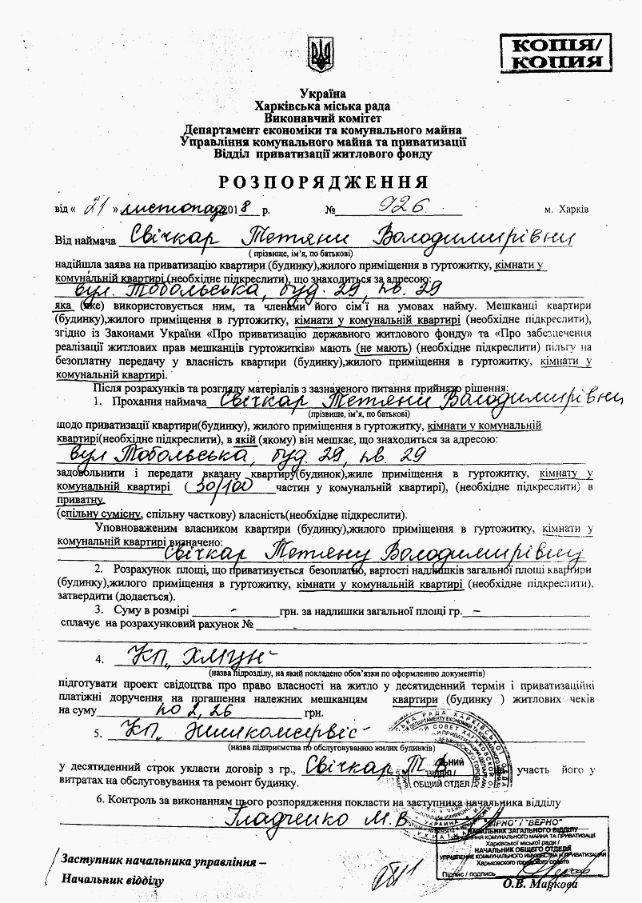 КОПІЯ/
КОПИЯ
Україна
Харківська міська рада
Виконавчий комітет
Департамент економіки та комунального майна
Управління комунального майна та приватизації
Відділ приватизації житлового фонду
РОЗПОРЯДЖЕННЯ
від « 21 » листопада 2018 р. № 926 м. Харків
Від наймача Свічкар Тетяни Володимирівни
( прізвище, ім’я, по батькові)
надійшла заява на приватизацію квартири (будинку),жилого приміщення в гуртожитку, кімнати у
комунальній квартирі (необхідне підкреслити), що знаходиться за адресою:
вул. Тобольська, буд. 29, кв. 29
яка (яке) використовується ним, та членами його сім’ї на умовах найму. Мешканці квартири
(будинку),жилого приміщення в гуртожитку, кімнати у комунальній квартирі (необхідне підкреслити),
згідно із Законами України «Про приватизацію державного житлового фонду» та «Про забезпечення
реалізації житлових прав мешканців гуртожитків» мають (не мають) (необхідне підкреслити) пільгу на
безоплатну передачу у власність квартири (будинку),жилого приміщення в гуртожитку, кімнати у
комунальній квартирі.
Після розрахунків та розгляду матеріалів з зазначеного питання прийнято рішення:
1. Прохання наймача Свічкар Тетяни Володимирівни
(прізвище, ім’я, по батькові)
щодо приватизації квартири(будинку), жилого приміщення в гуртожитку, кімнати у комунальній
квартирі(необхідне підкреслити), в якій (якому) він мешкає, що знаходиться за адресою:
вул Тобольська, буд. 29, кв. 29
задовольнити і передати вказану квартиру(будинок),жиле приміщення в гуртожитку, кімнату у
комунальній квартирі ( 50/100 частин у комунальній квартирі), (необхідне підкреслити) в
приватну,
(спільну сумісну, спільну часткову) власність(необхідне підкреслити).
Уповноваженим власником квартири (будинку),жилого приміщення в гуртожитку, кімнати у
комунальній квартирі визначено:
Свічкар Тетяну Володимирівну
2. Розрахунок площі, що приватизується безоплатно, вартості надлишків загальної площі квартири
(будинку),жилого приміщення в гуртожитку, кімнати у комунальній квартирі (необхідне підкреслити),
затвердити (додається).
3. Суму в розмірі - грн. за надлишки загальної площі гр. –
сплачує на розрахунковий рахунок №
4. КП „ ХМЦН"
(назва підрозділу, на який покладено обов’язки по оформленню документів)
підготувати проект свідоцтва про право власності на житло у десятиденний термін і приватизаційні
платіжні доручення на погашення належних мешканцям квартири (будинку ) житлових чеків
на суму по 2,26 грн.
5. КП „ Жилкомсервіс"
(назва підприємства по обслуговуванню жилих будинків)
у десятиденний строк укласти договір з гр., Свічкар Т. участь його у
витратах на обслуговування та ремонт будинку.
ОБЩИЙ ОТДЕЛ
6. Контроль за виконанням цього розпорядження покласти на заступника начальника відділу
Гладченко М.В.
"ВІРНО" / "ВЕРНО"
НАЧАЛЬНИК ЗАГАЛЬНОГО ВІДДІЛУ
Харківської міської ради /
НАЧАЛЬНИК ОБЩЕГО ОТДЕЛА
Харьковского городского совета
Підпис / подпись
Заступник начальника управління –
Начальник відділу О.В. Маркова